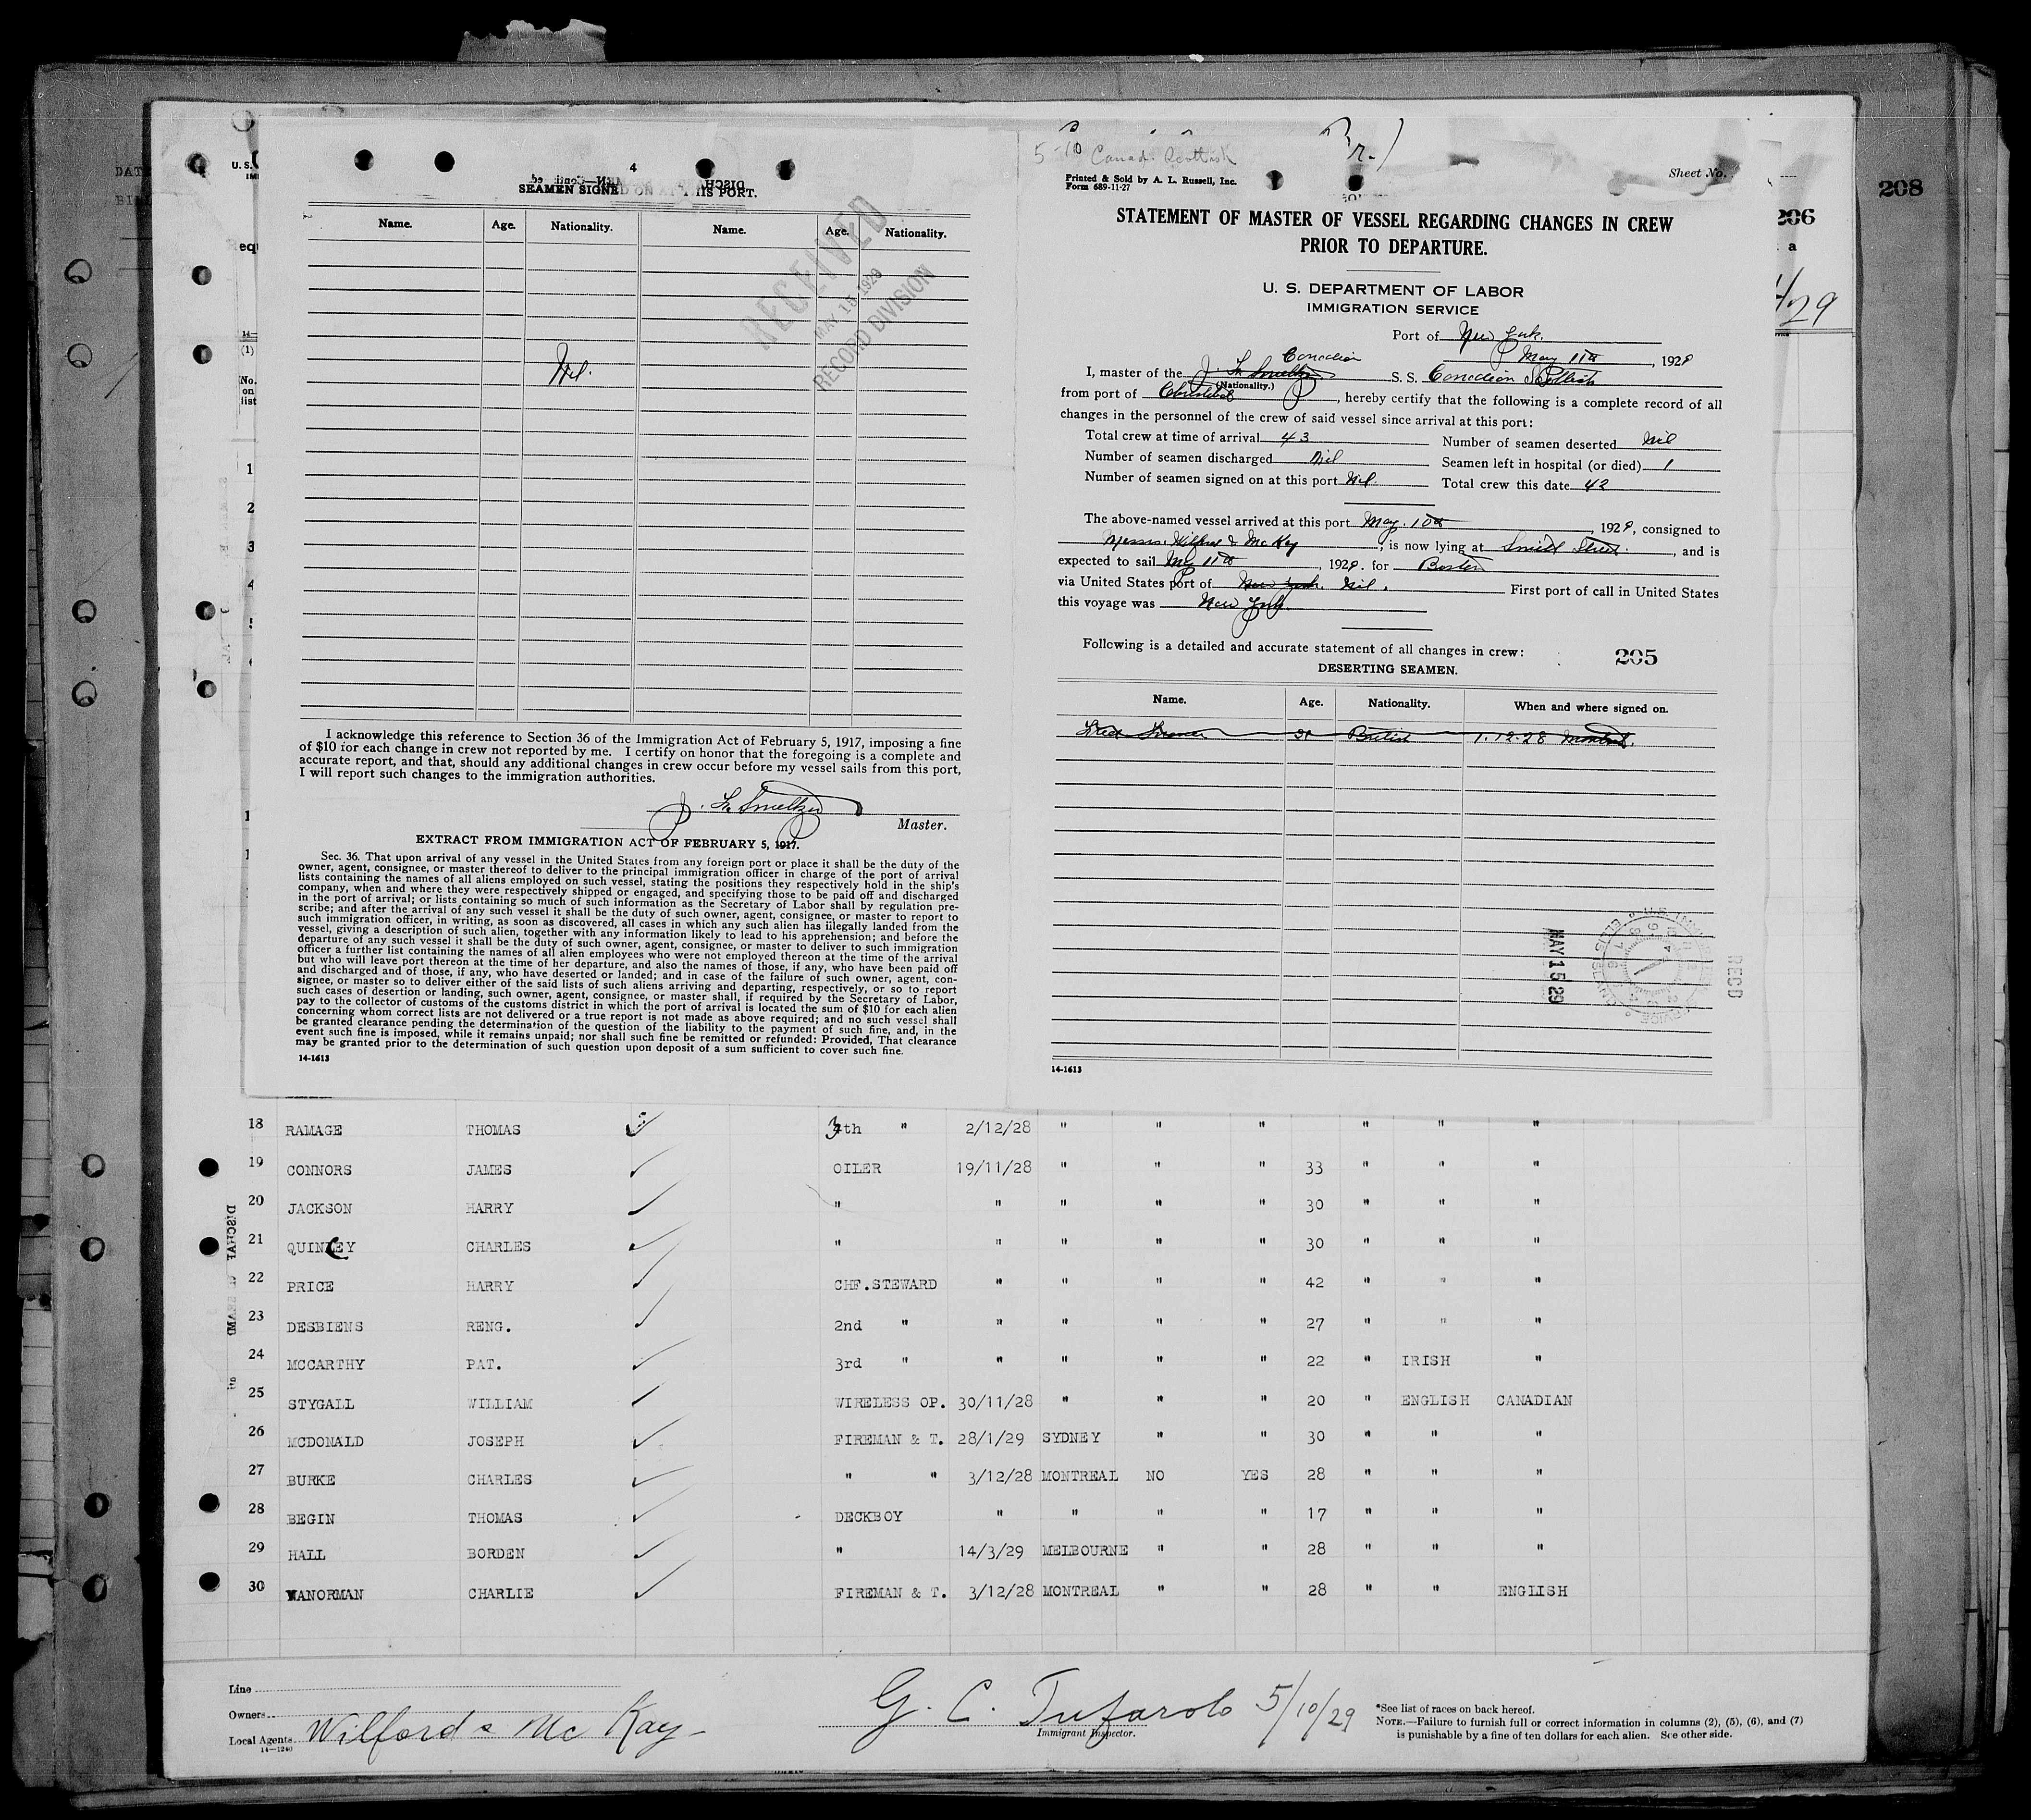 4
SEAMEN SIGNED ON AT THIS PORT.
Name. Age. Nationality. Name. Age. Nationality.
RECEIVED
MAY 16 1929
RECORD DIVISION
Nil.
I acknowledge this reference to Section 36 of the Immigration Act of February 5, 1917, imposing a fine
of $10 for each change in crew not reported by me. I certify on honor that the foregoing is a complete and
accurate report, and that, should any additional changes in crew occur before my vessel sails from this port,
I will report such changes to the immigration authorities.
Smeltzer
Master.
EXTRACT FROM IMMIGRATION ACT OF FEBRUARY 5, 1917.
Sec. 36. That upon arrival of any vessel in the United States from any foreign port or place it shall be the duty of the
owner, agent, consignee, or master thereof to deliver to the principal immigration officer in charge of the port of arrival
lists containing the names of all aliens employed on such vessel, stating the positions they respectively hold in the ship's
company, when and where they were respectively shipped or engaged, and specifying those to be paid off and discharged
in the port of arrival; or lists containing so much of such information as the Secretary of Labor shall by regulation pre-
scribe; and after the arrival of any such vessel it shall be the duty of such owner, agent, consignee, or master to report to
such immigration officer, in writing, as soon as discovered, all cases in which any such alien has illegally landed from the
vessel, giving a description of such alien, together with any information likely to lead to his apprehension; and before the
departure of any such vessel it shall be the duty of such owner, agent, consignee, or master to deliver to such immigration
officer a further list containing the names of all alien employees who were not employed thereon at the time of the arrival
but who will leave port thereon at the time of her departure, and also the names of those, if any, who have been paid off
and discharged and of those, if any, who have deserted or landed; and in case of the failure of such owner, agent, con-
signee, or master so to deliver either of the said lists of such aliens arriving and departing, respectively, or so to report
such cases of desertion or landing, such owner, agent, consignee, or master shall, if required by the Secretary of Labor,
pay to the collector of customs of the customs district in which the port of arrival is located the sum of $10 for each alien
concerning whom correct lists are not delivered or a true report is not made as above required; and no such vessel shall
be granted clearance pending the determination of the question of the liability to the payment of such fine, and, in the
event such fine is imposed, while it remains unpaid; nor shall such fine be remitted or refunded: Provided, That clearance
may be granted prior to the determination of such question upon deposit of a sum sufficient to cover such fine.
14-1613
5-10 Canad. Scottish
Br.)
Printed & Sold by A. L. Russell, Inc.
Form 689-11-27
Sheet No.
STATEMENT OF MASTER OF VESSEL REGARDING CHANGES IN CREW
PRIOR TO DEPARTURE.
U. S. DEPARTMENT OF LABOR
IMMIGRATION SERVICE
Port of New York.
May 11th, 1929
Canadian
I, master of the J. Smeltzer S. S. Canadian Scottish
(Nationality.)
from port of Cristobal, hereby certify that the following is a complete record of all
changes in the personnel of the crew of said vessel since arrival at this port:
Total crew at time of arrival 43 Number of seamen deserted Nil
Number of seamen discharged Nil Seamen left in hospital (or died) 1
Number of seamen signed on at this port Nil Total crew this date 42
The above-named vessel arrived at this port May 10th, 1929, consigned to
Messrs. Wilford & McKay, is now lying at Smith Street., and is
expected to sail May 11th, 1929. for Boston
via United States port of New York. Nil. First port of call in United States
this voyage was New York.
Following is a detailed and accurate statement of all changes in crew:
205
DESERTING SEAMEN.
Name. Age. Nationality. When and where signed on.
British 1.12.28 Montreal.
MAY 15 29
RECD
14-1613
208
206
18 RAMAGE THOMAS 3th " 2/12/28 " " " " " "
19 CONNORS JAMES OILER 19/11/28 " " " 33 " " "
20 JACKSON HARRY " " " " " 30 " " "
21 QUINLEY CHARLES " " " " " 30 " " "
22 PRICE HARRY CHF.STEWARD " " " " 42 " " "
23 DESBIENS RENG. 2nd " " " " " 27 " " "
24 MCCARTHY PAT. 3rd " " " " " 22 " IRISH "
25 STYGALL WILLIAM WIRELESS OP. 30/11/28 " " " 20 " ENGLISH CANADIAN
26 MCDONALD JOSEPH FIREMAN & T. 28/1/29 SYDNEY " " 30 " " "
27 BURKE CHARLES " " 3/12/28 MONTREAL NO YES 28 " " "
28 BEGIN THOMAS DECKBOY " " " " 17 " " "
29 HALL BORDEN " 14/3/29 MELBOURNE " " 28 " " "
30 VANORMAN CHARLIE FIREMAN & T. 3/12/28 MONTREAL " " 28 " " ENGLISH
Line
Owners
Local Agents Wilford & Mc Kay
14-1240
G. C. Tufarolo 5/10/29
Immigrant Inspector.
*See list of races on back hereof.
NOTE.—Failure to furnish full or correct information in columns (2), (5), (6), and (7)
is punishable by a fine of ten dollars for each alien. See other side.